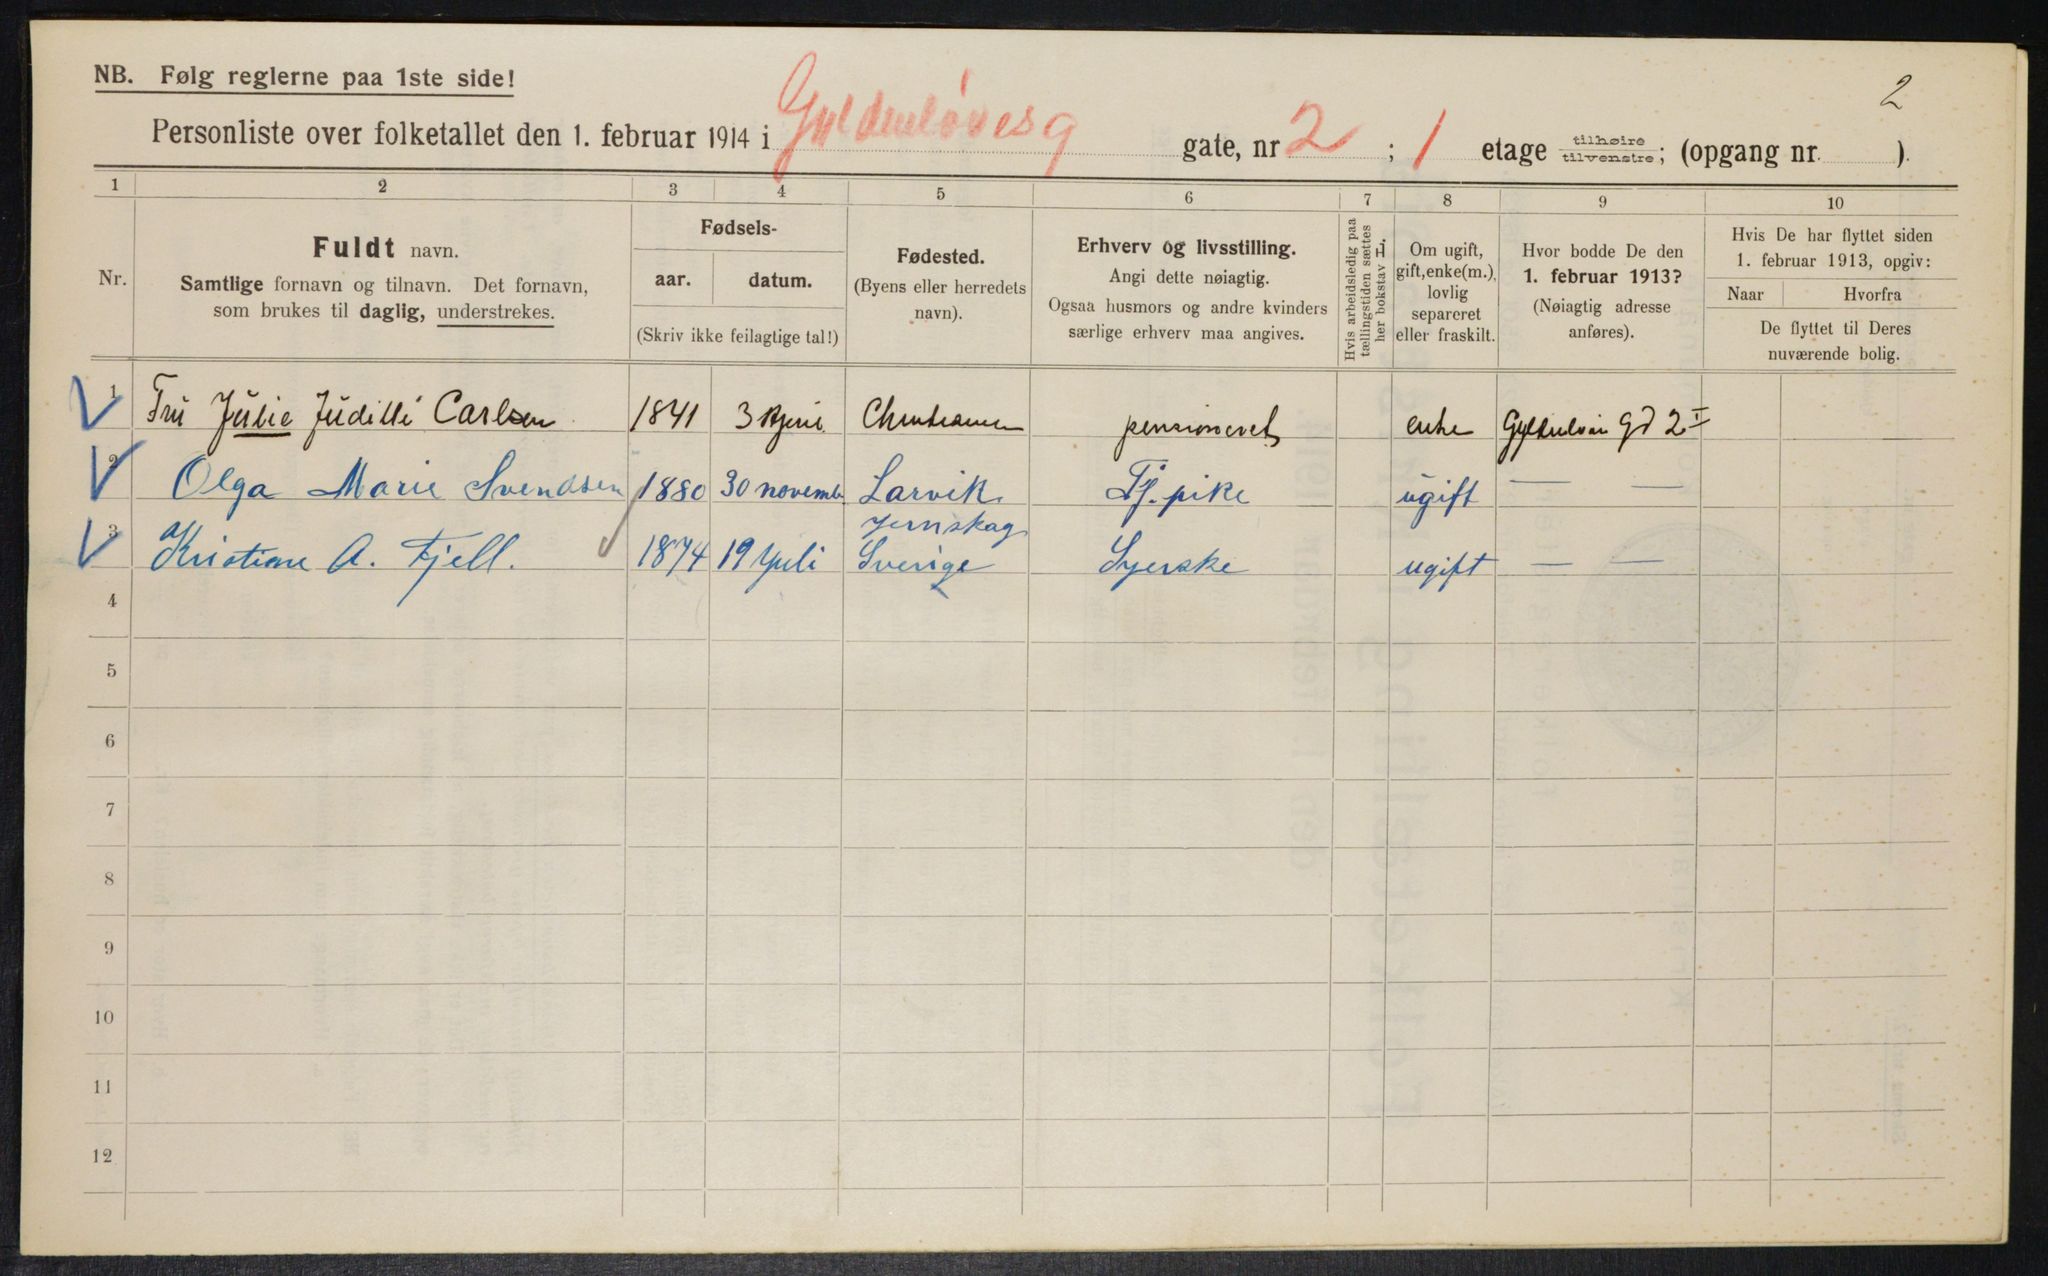 2
NB. Følg reglerne paa 1ste side!
Personliste over folketallet den 1. februar 1914 i Gyldenløvesg gate, nr 2 ; 1 etage tilhøire tilvenstre; (opgang nr. ).
1 2 3 4 5 6 7 8 9 10
Nr.
Fuldt navn.
Samtlige fornavn og tilnavn. Det fornavn,
som brukes til daglig, understrekes.
Fødsels-
aar. datum.
(Skriv ikke feilagtige tal!)
Fødested.
(Byens eller herredets
navn).
Erhverv og livsstilling.
Angi dette nøiagtig.
Ogsaa husmors og andre kvinders
særlige erhverv maa angives.
Hvis arbeidsledig paa
tællingstiden sættes
her bokstav L.
Om ugift,
gift, enke(m.),
lovlig
separeret
eller fraskilt.
Hvor bodde De den
1. februar 1913?
(Nøiagtig adresse
anføres).
Hvis De har flyttet siden
1. februar 1913, opgiv:
Naar Hvorfra
De flyttet til Deres
nuværende bolig.
1 Fru Julie Carlsen 1841 3 pensioneret enke 2 I
2 Olga Marie Svendsen 1880 30 novemb. Larvik Tj. pike ugift — —
Jernskag
3 Kristine A. Fjell. 1874 19 Juli Sverige Syerske ugift — —
4
5
6
7
8
9
10
11
12